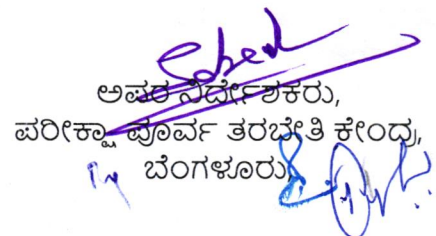 ಅಪರ ನಿರ್ದೇಶಕರು,
ಪರೀಕ್ಷಾ ಪೂರ್ವ ತರಬೇತಿ ಕೇಂದ್ರ,
ಬೆಂಗಳೂರು.